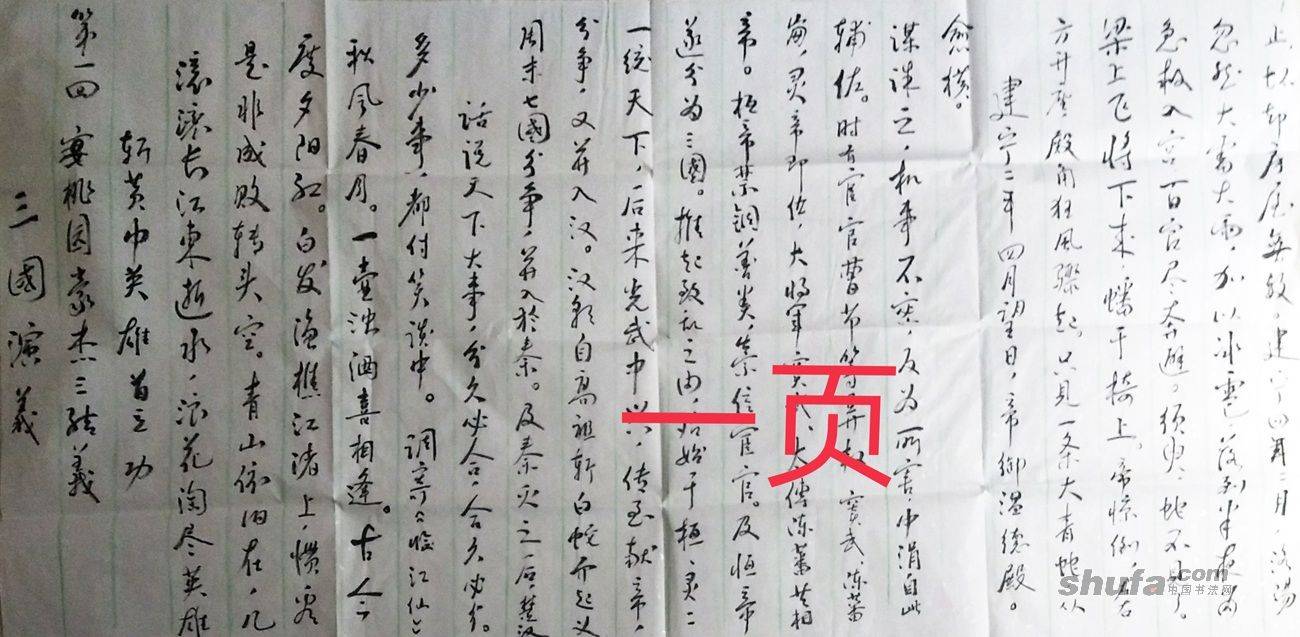 三國演義
第一回 宴桃园豪杰三结義
斩黄巾英雄首立功
滚滚长江東逝水，浪花淘尽英雄
是非成败转头空。青山依旧在，几
度夕阳红。白发渔樵江渚上，惯看
秋風春月。一壶浊酒喜相逢。古今
多少事，都付笑谈中。 调寄《临江仙》
话说天下大事，分久必合，合久必分。
周末七國分争，并入於秦。及秦灭之后，楚汉
分争，又并入汉。汉朝自高祖斩白蛇而起义
一统天下，后来光武中兴，传至献帝，
遂分为三國。推起致乱之由，殆始于桓灵二
帝。桓帝禁锢善类，崇信宦官。及桓帝
崩，灵帝即位，大将军窦武、太傅陈蕃共相
辅佐。时有宦官曹节等弄权，窦武陈蕃
谋诛之，机事不密，反为所害，中涓自此
愈横。
建宁二年四月望日，帝御温德殿。
方升座殿角狂風骤起。只见一条大青蛇从
梁上飞将下来，蟠于椅上。帝惊倒，左右
急救入宫，百官尽奔避。须臾，蛇不见了。
忽然大雷大雨，加以冰雹，落到半夜方
止，坏却房屋無数。建宁四年二月，洛阳
一页
shufa.com
中国书法网